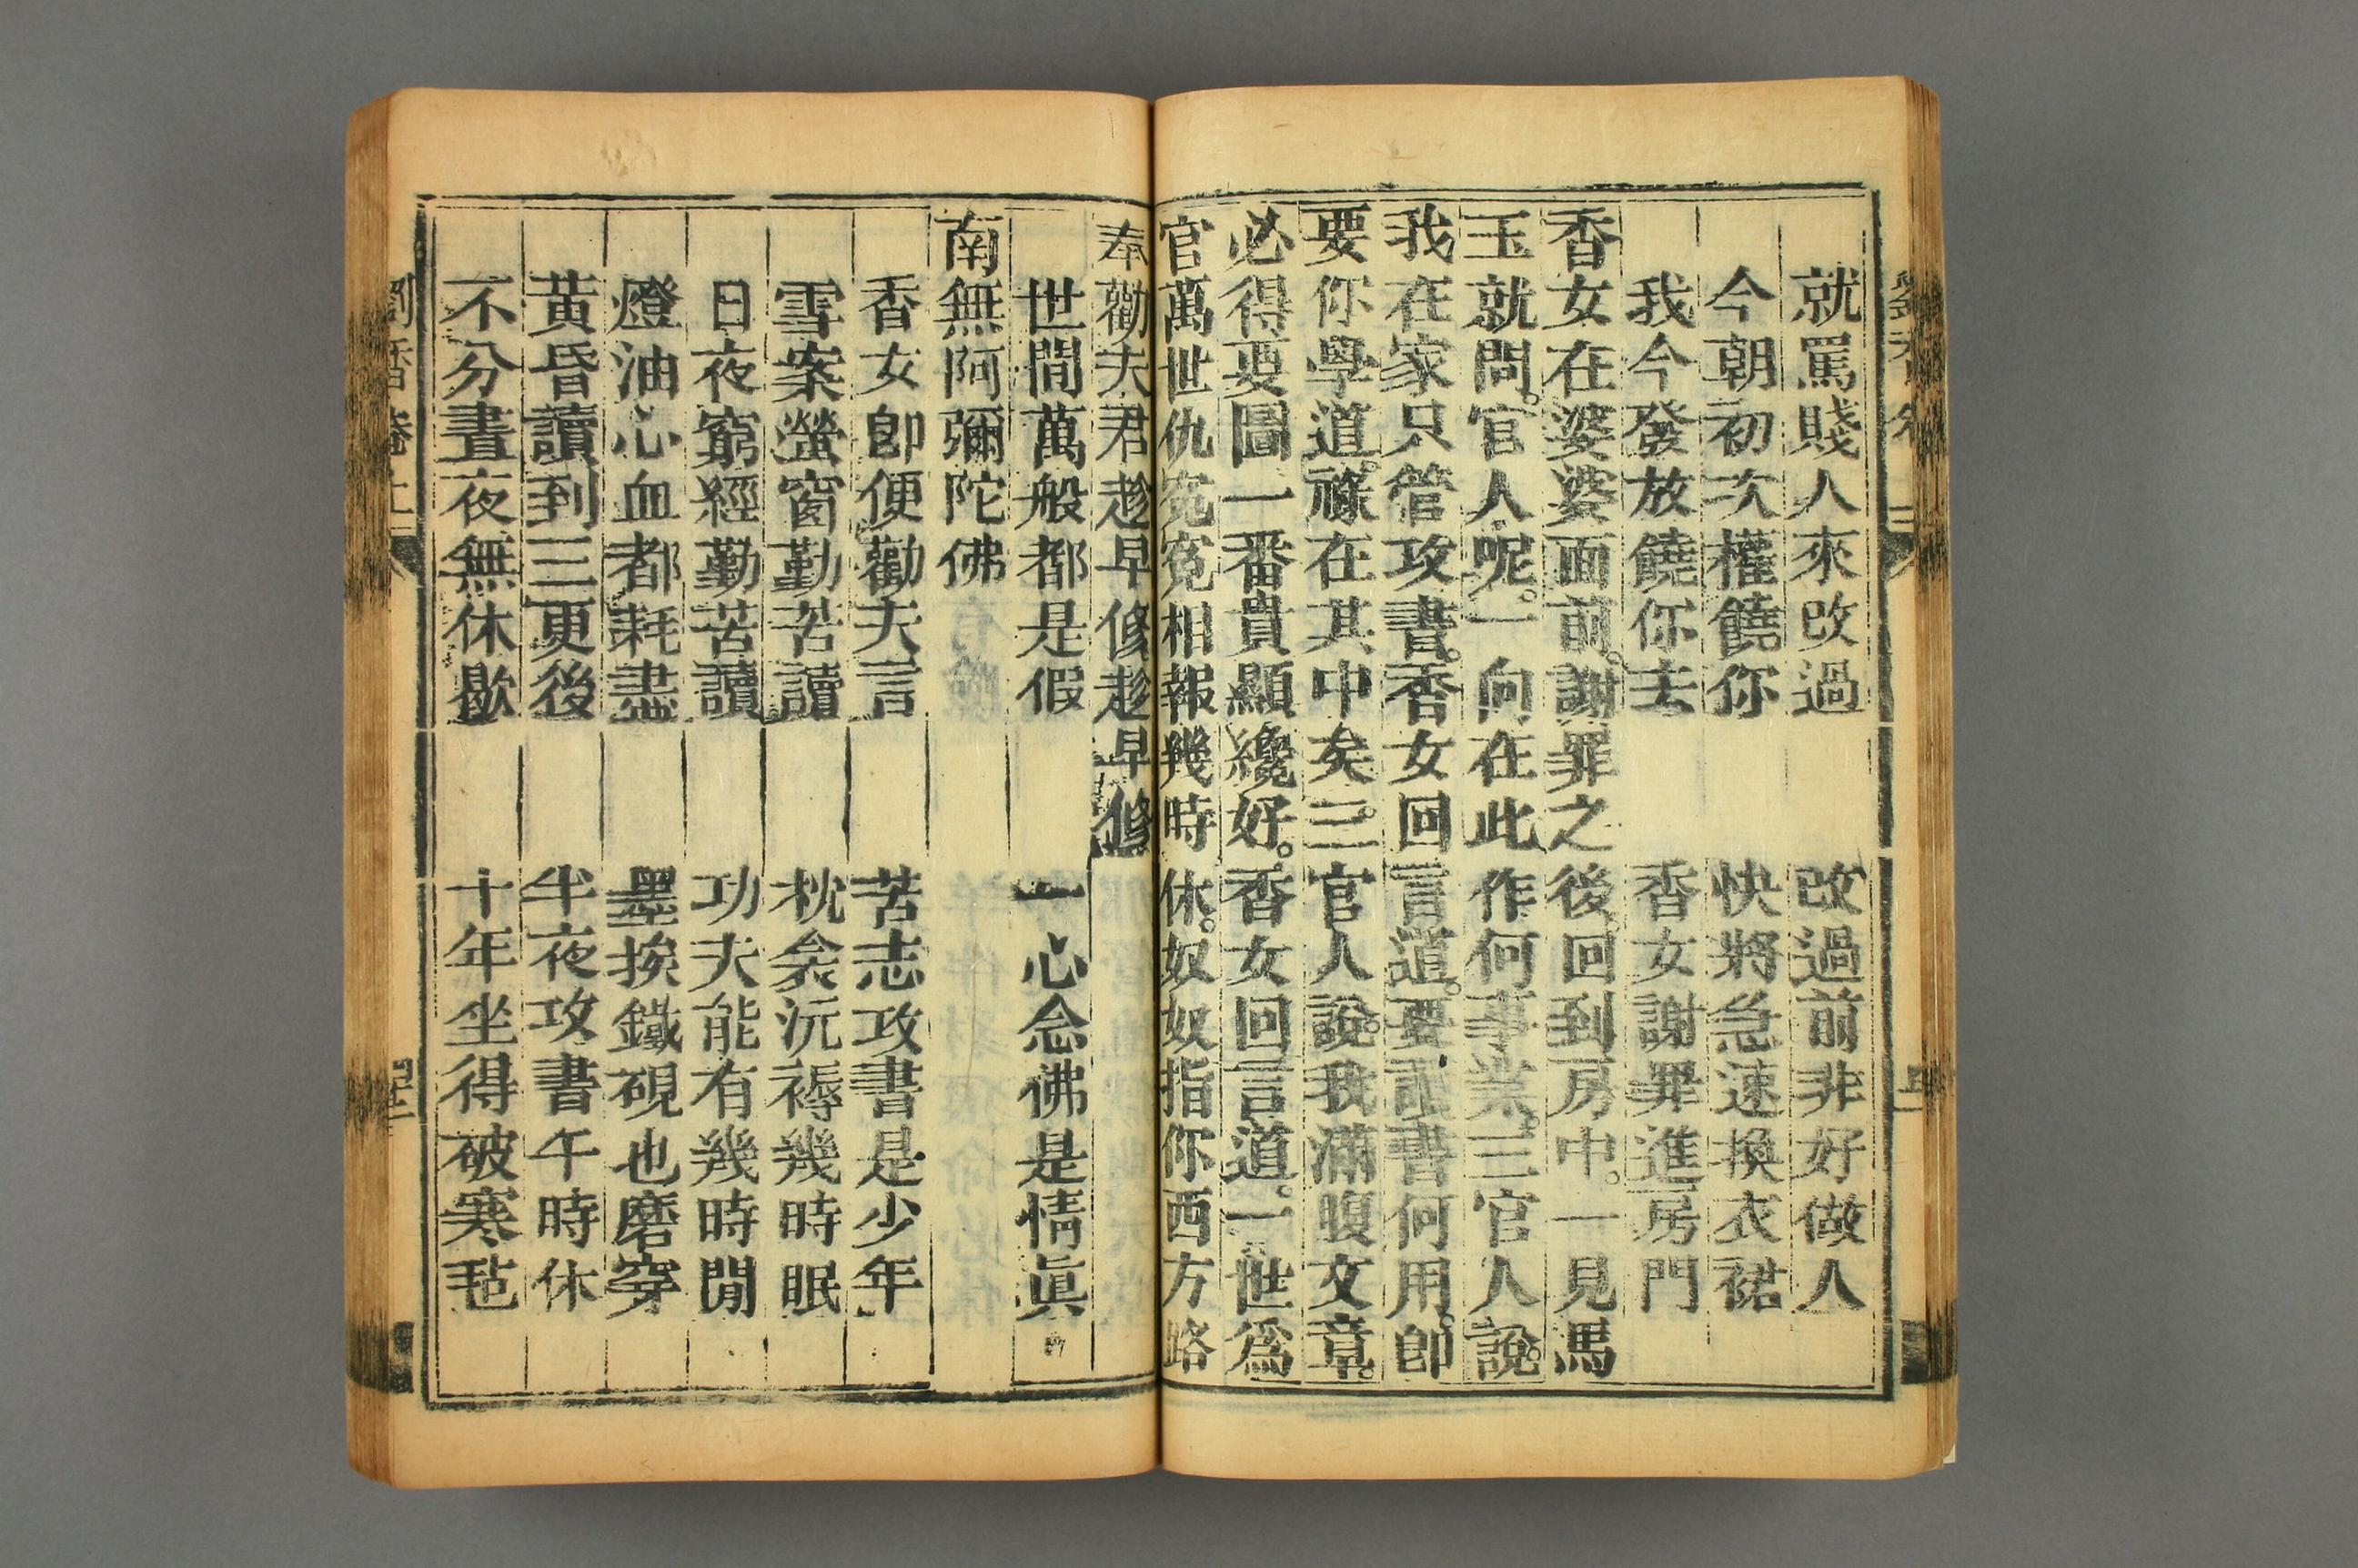 就罵賤人來改過　改過前非好做人
今朝初次權饒你　快將急速換衣裙
我今發放饒你去　香女謝罪進房門
香女在婆婆面前。謝罪之後。回到房中。一見馬
玉就問。官人呢。一向在此作何事業。三官人說。
我在家只管攻書。香女回言道。要讀書何用。卽
要你學道。祿在其中矣。三官人說。我滿腹文章。
必得要圖一番貴顯纔好。香女回言道。一世爲
官萬世仇寃寃相報幾時休。奴奴指你西方路
奉勸夫君趁早修趁早修
世間萬般都是假　一心念佛是情眞
南無阿彌陀佛
香女卽便勸夫言　苦志攻書是少年
雪案螢窗勤苦讀　枕衾沅褥幾時眠
日夜窮經勤苦讀　功夫能有幾時閒
燈油心血都耗盡　墨挨鐵硯也磨穿
黃昏讀到三更後　半夜攻書午時休
不分晝夜無休歇　十年坐得破寒毡
劉香卷上